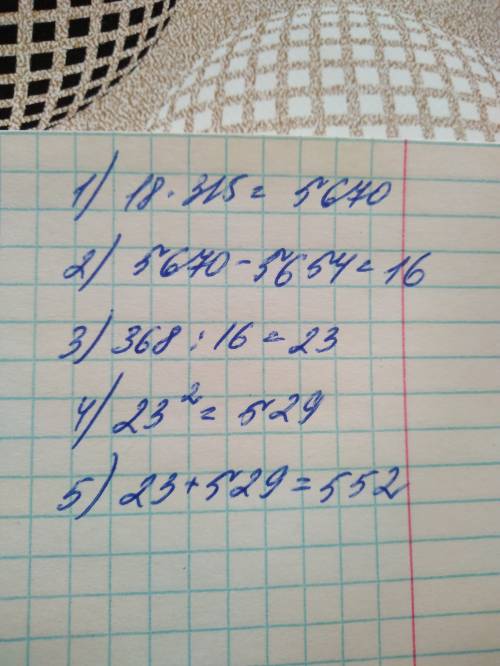 1) 18 · 315 = 5670
2) 5670 - 5654 = 16
3) 368 : 16 = 23
4) 23² = 529
5) 23 + 529 = 552